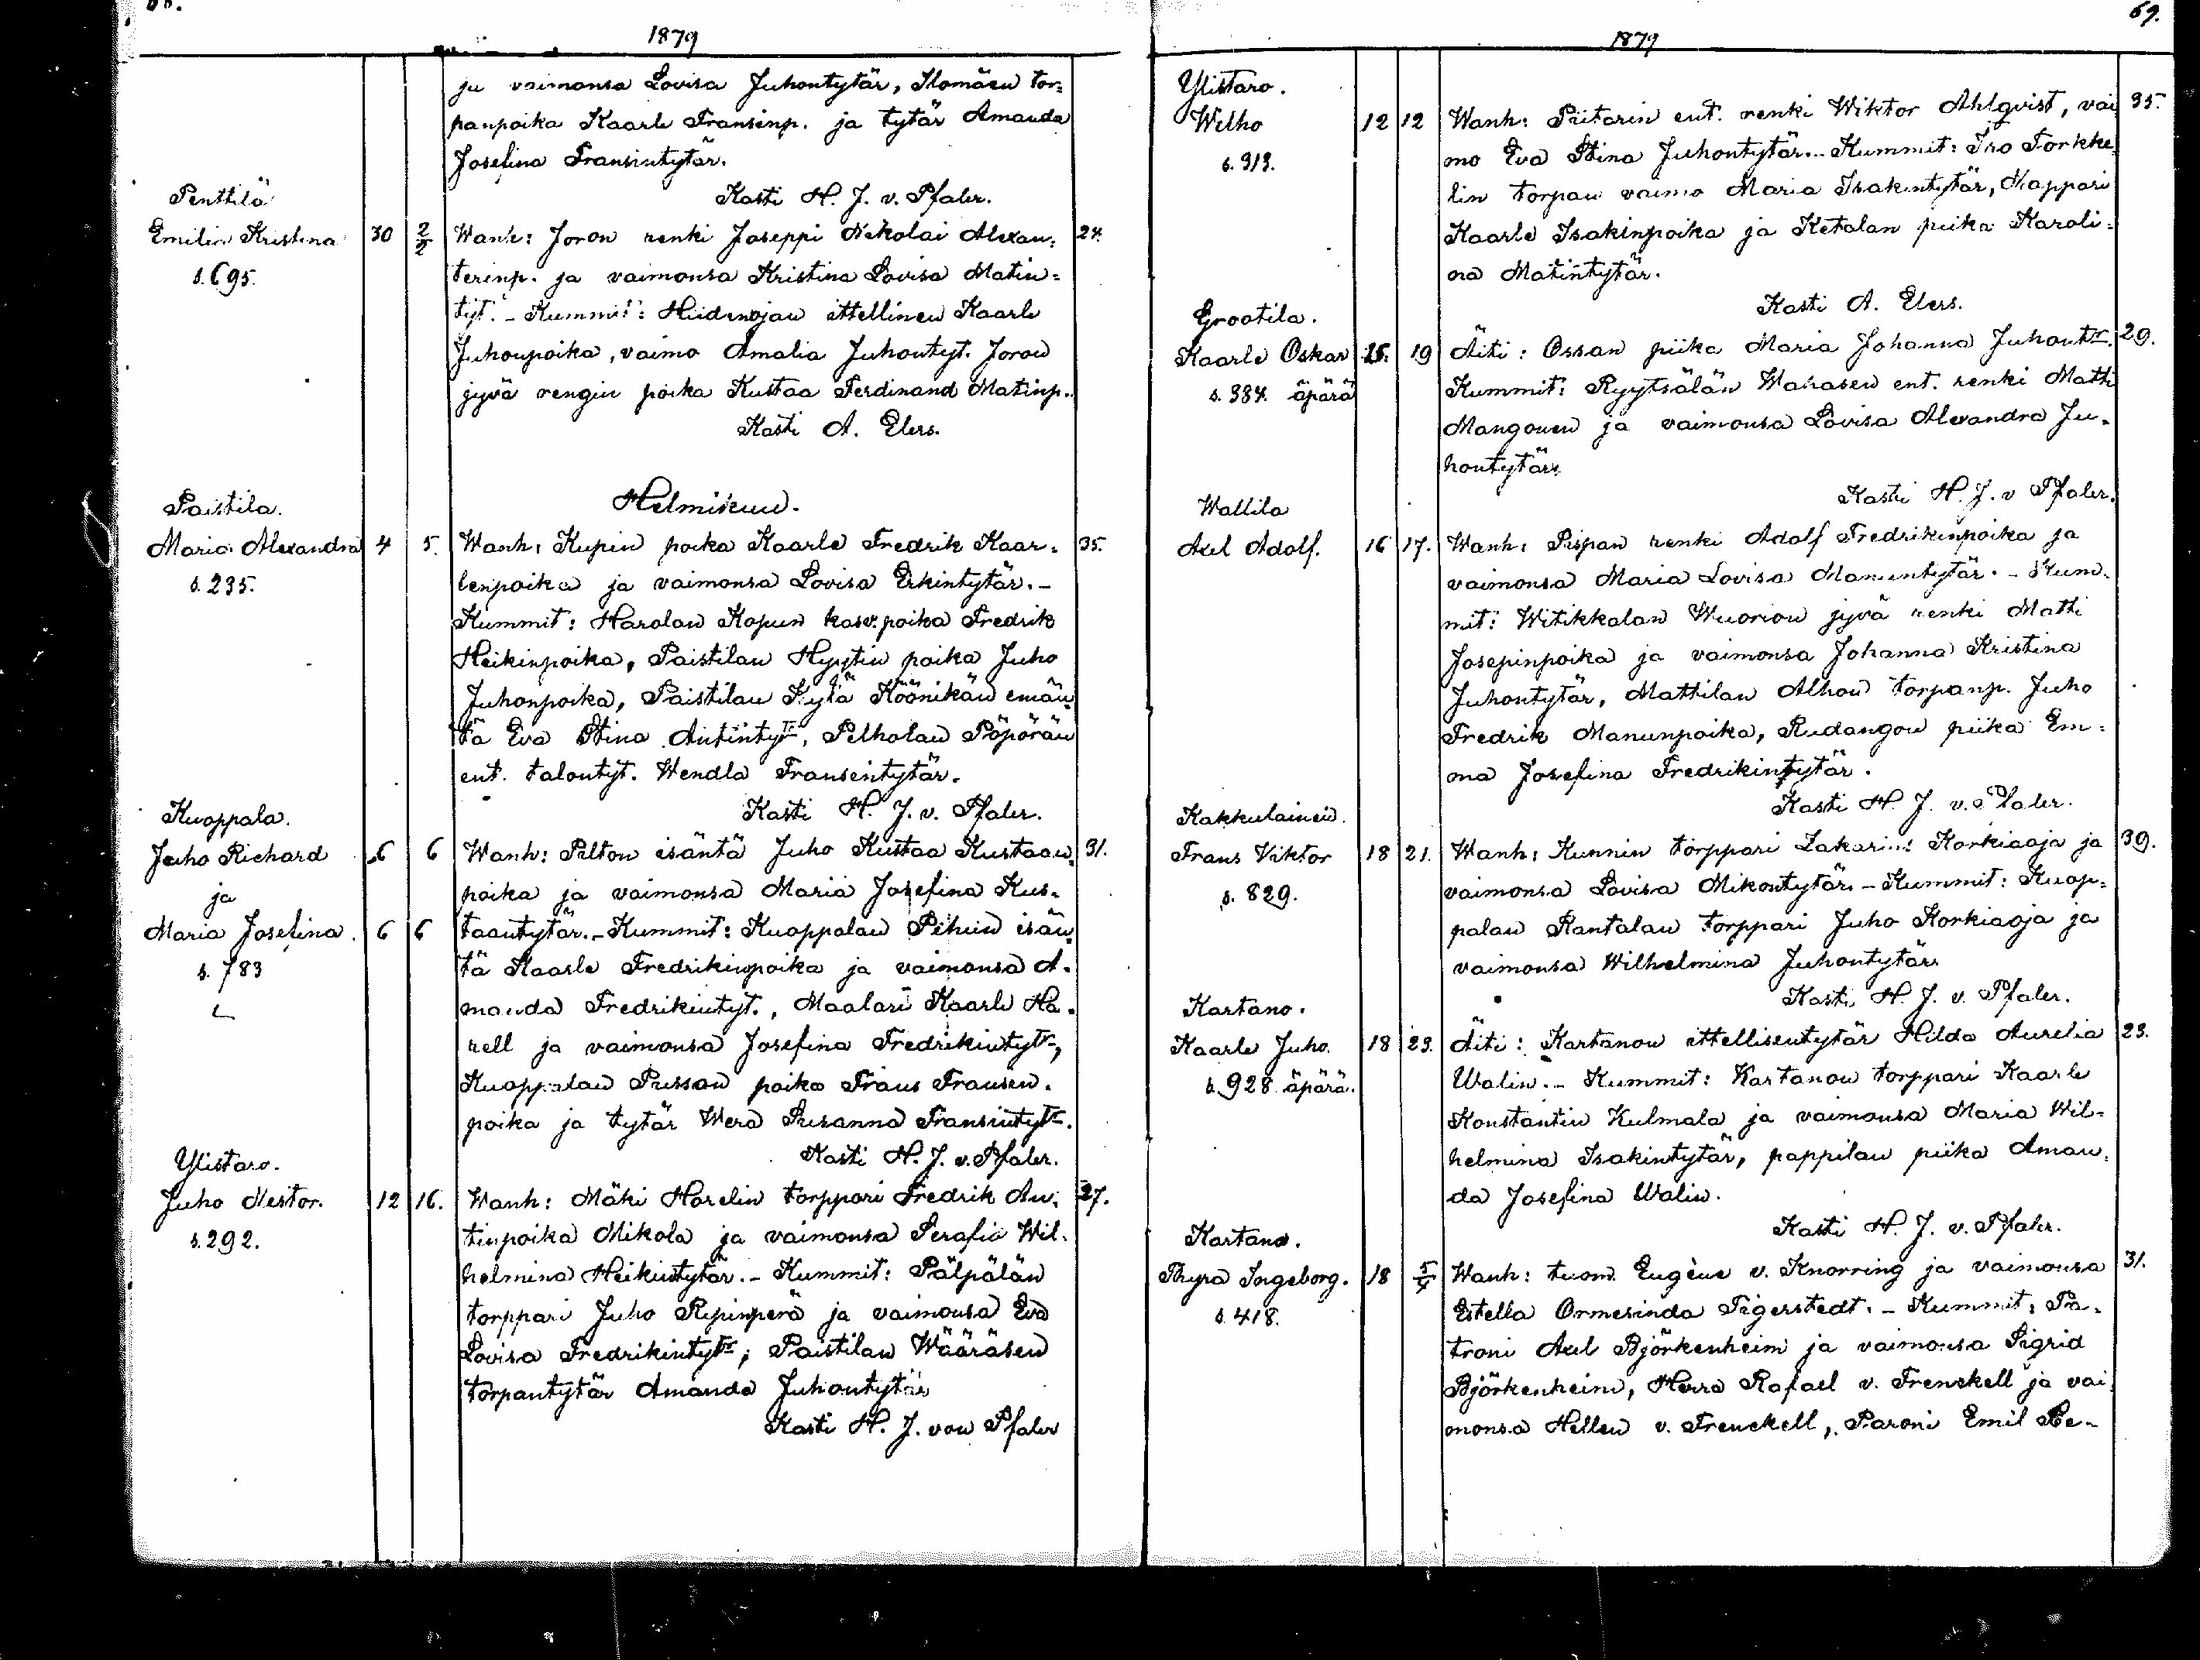 1879
ja vaimonsa Lovisa Juhontytär, Ilomäen tor=
panpoika Kaarle Fransinp. ja tytär Amanda
Josefina Fransintytär.
Kasti H. J. v. Pfaler.
Penttilä
Emilia Kristina 30 2/2 Wanh: Joron renki Joseppi Nikolai Alexan= 24.
s. 695. terinp. ja vaimonsa Kristina Lovisa Matin=
tyt. - Kummit: Hiidenojan ittellinen Kaarle
Juhonpoika, vaimo Amalia Juhontyt. Joron
jyvä rengin poika Kustaa Ferdinand Matinp.
Kasti A. Elers.
Helmikuu.
Paistila.
Maria Alexandra 4 5. Wanh: Kupin poika Kaarle Fredrik Kaar= 35.
s. 235. lenpoika ja vaimonsa Lovisa Erkintytär. -
Kummit: Harolan Kopun kasv. poika Fredrik
Heikinpoika, Paistilan Hyytin poika Juho
Juhonpoika, Paistilan Kylä Köönikän emän=
tä Eva Stina Antintytr, Pelholan Pöpörän
ent. talontyt. Wendla Fransintytär.
Kasti H. J. v. Pfaler.
Kuoppala.
Juho Richard 6 6 Wanh: Pelton isäntä Juho Kustaa Kustaan= 31.
ja poika ja vaimonsa Maria Josefina Kus=
Maria Josefina. 6 6 taantytär. - Kummit: Kuoppalan Pihin isän=
s. 783 tä Kaarle Fredrikinpoika ja vaimonsa A=
manda Fredrikintyt., Maalari Kaarle Ha=
rell ja vaimonsa Josefina Fredrikintytr,
Kuoppalan Prissan poika Frans Fransin=
poika ja tytär Wera Susanna Fransintytr.
Kasti H. J. v. Pfaler.
Ylistaro.
Juho Nestor. 12 16. Wanh: Mäki Harelin torppari Fredrik An= 27.
s. 292. tinpoika Mikola ja vaimonsa Serafia Wil=
helmina Heikintytär. - Kummit: Pälpälän
torppari Juho Ripinperä ja vaimonsa Eva
Lovisa Fredrikintytr, Paistilan Wääräsen
torpantytär Amanda Juhontytär
Kasti H. J. von Pfaler
69.
1879
Ylistaro.
Wilho 12 12 Wanh: Piitarin ent. renki Wiktor Ahlqvist, vai= 35.
s. 313. mo Eva Stina Juhontytär. - Kummit: Iso Torkke=
lin torpan vaimo Maria Isakintytär, Kappari
Kaarle Isakinpoika ja Ketalan piika Karoli=
na Matintytär.
Kasti A. Elers.
Grootila.
Kaarle Oskar 15. 19 Äiti: Ossan piika Maria Johanna Juhontr. 29.
s. 384. äpärä Kummit: Ryytsälän Wahasen ent. renki Matti
Mangonen ja vaimonsa Lovisa Alexandra Ju=
hontytär.
Kasti H. J. v Pfaler.
Wallila
Axel Adolf. 16 17. Wanh: Pispan renki Adolf Fredrikinpoika ja
vaimonsa Maria Lovisa Manuntytär. - Kum=
mit: Witikkalan Wuorion jyvä renki Matti
Josepinpoika ja vaimonsa Johanna Kristina
Juhontytär, Mattilan Alhon torpanp. Juho
Fredrik Manunpoika, Rudangon piika Em=
ma Josefina Fredrikintytär.
Kasti H. J. v. Pfaler.
Kakkulainen.
Frans Viktor 18 21. Wanh: Kunnin torppari Zakarias Korkiaoja ja 39.
s. 829. vaimonsa Lovisa Mikontytär. - Kummit: Kuop=
palan Rantalan torppari Juho Korkiaoja ja
vaimonsa Wilhelmina Juhontytär.
Kasti H. J. v. Pfaler.
Kartano.
Kaarle Juho. 18 23. Äiti: Kartanon ittellisentytär Hilda Aurelia 23.
s. 928. äpärä. Walin. - Kummit: Kartanon torppari Kaarle
Konstantin Kulmala ja vaimonsa Maria Wil=
helmina Isakintytär, pappilan piika Aman=
da Josefina Walin.
Kasti H. J. v. Pfaler.
Kartano.
Thyra Ingeborg. 18 5/4 Wanh: tuom. Eugène v. Knorring ja vaimonsa 31.
s. 418. Estella Ormesinda Tigerstedt. - Kummit: Pa=
troni Axel Björkenheim ja vaimonsa Sigrid
Björkenheim, Herra Rafael v. Frenckell ja vai=
monsa Hellen v. Frenckell, Paroni Emil Ce-